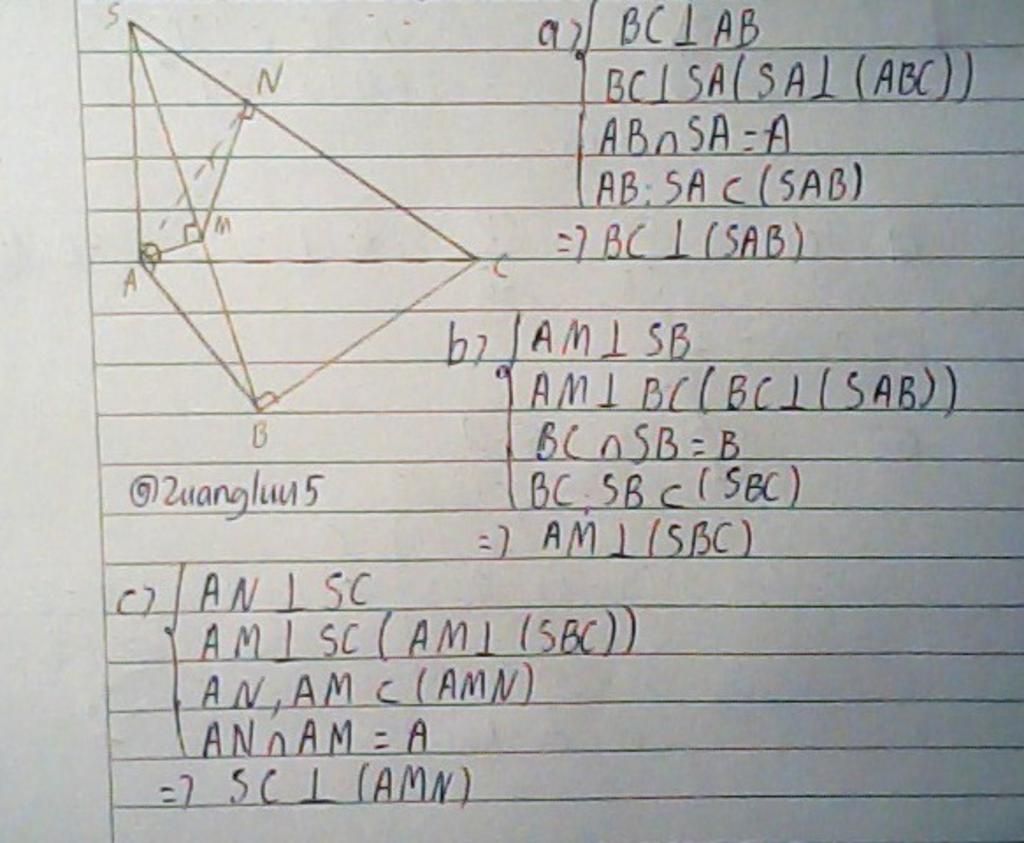 S
N
M
A
C
B
@2uangluu5
a) BC ⊥ AB
BC ⊥ SA (SA ⊥ (ABC))
AB ∩ SA = A
AB, SA ⊂ (SAB)
=> BC ⊥ (SAB)
b) AM ⊥ SB
AM ⊥ BC (BC ⊥ (SAB))
BC ∩ SB = B
BC, SB ⊂ (SBC)
=> AM ⊥ (SBC)
c) AN ⊥ SC
AM ⊥ SC (AM ⊥ (SBC))
AN, AM ⊂ (AMN)
AN ∩ AM = A
=> SC ⊥ (AMN)